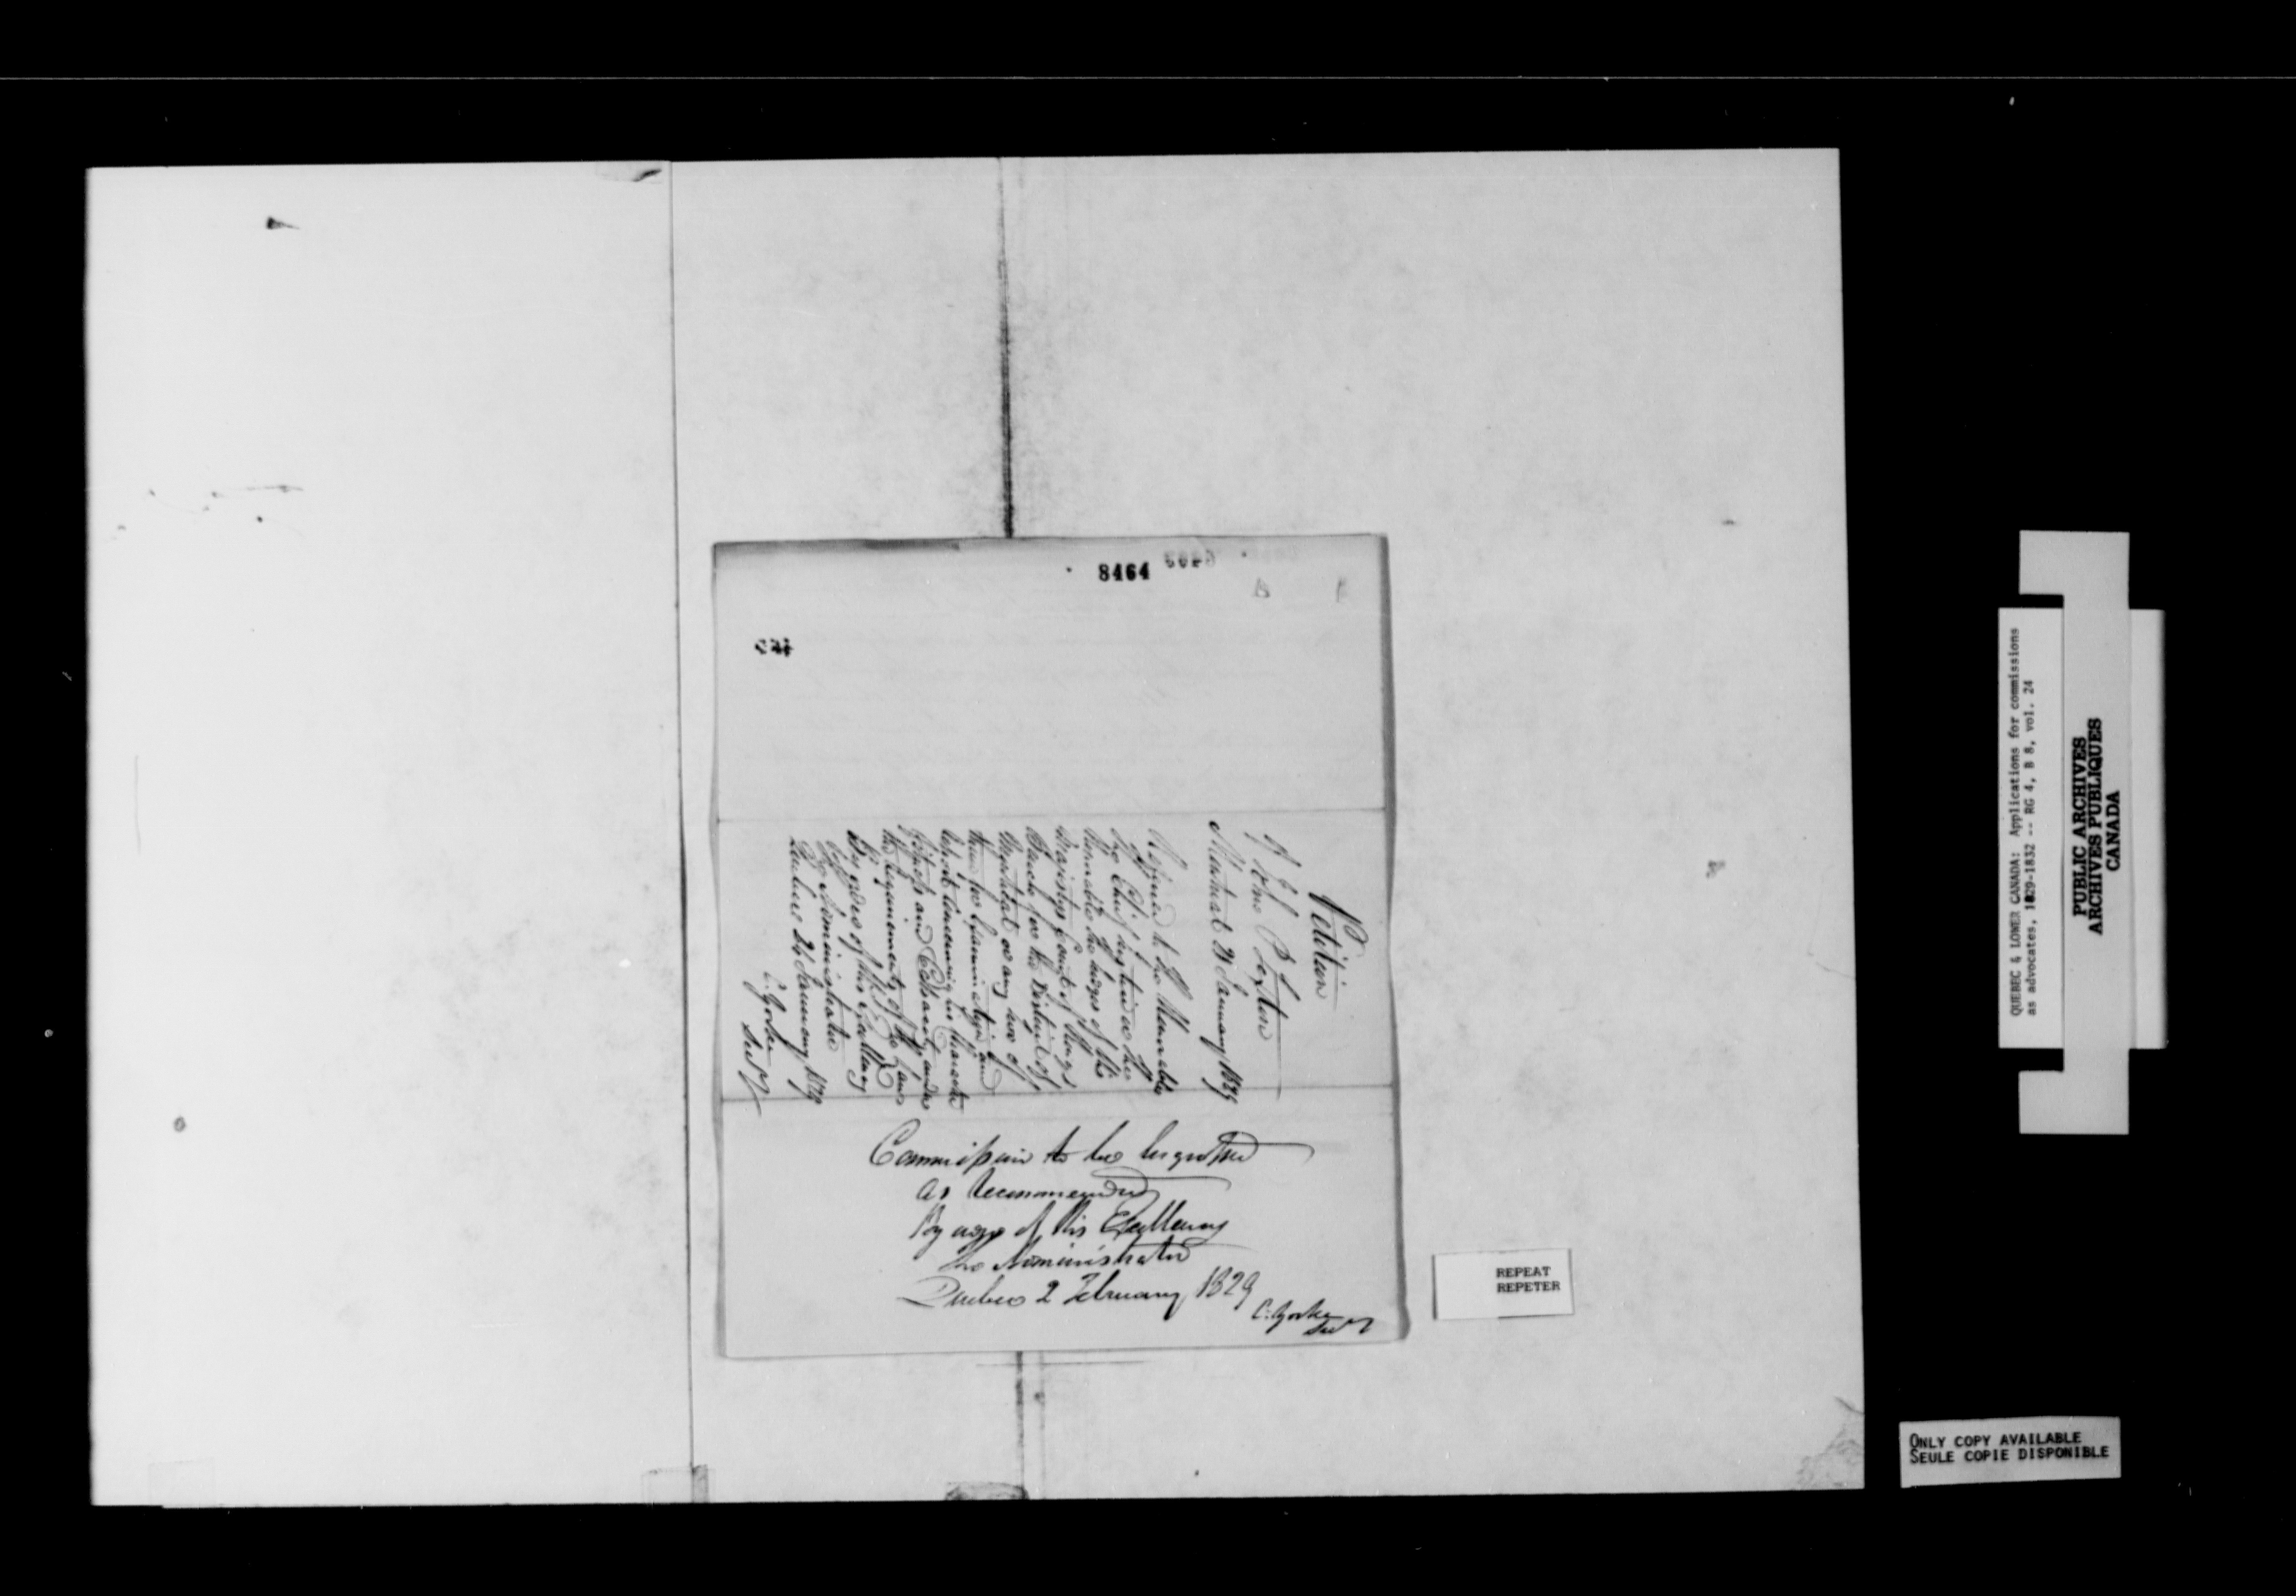 8464
Petition
of John P Sexton
Montreal 21 January 1829
Referred to the Honorable
the Chief Justice or the
Honorable the Judges of the
Majestys Court of Kings
Bench for the District of
Montreal or any two of
them for Examination and
Report concerning his Character
Fitness and Capacity under
the requirements of the Law
By order of His Excellency
the Administrator
Quebec 24 January 1829
C: Yorke
Secy
Commission to be Engrossed
as recommended
By order of His Excellency
the Administrator
Quebec 2 February 1829
C: Yorke
Secy
REPEAT
REPETER
QUEBEC & LOWER CANADA: Applications for commissions
as advocates, 1829-1832 -- RG 4, B 8, vol. 24
PUBLIC ARCHIVES
ARCHIVES PUBLIQUES
CANADA
ONLY COPY AVAILABLE
SEULE COPIE DISPONIBLE